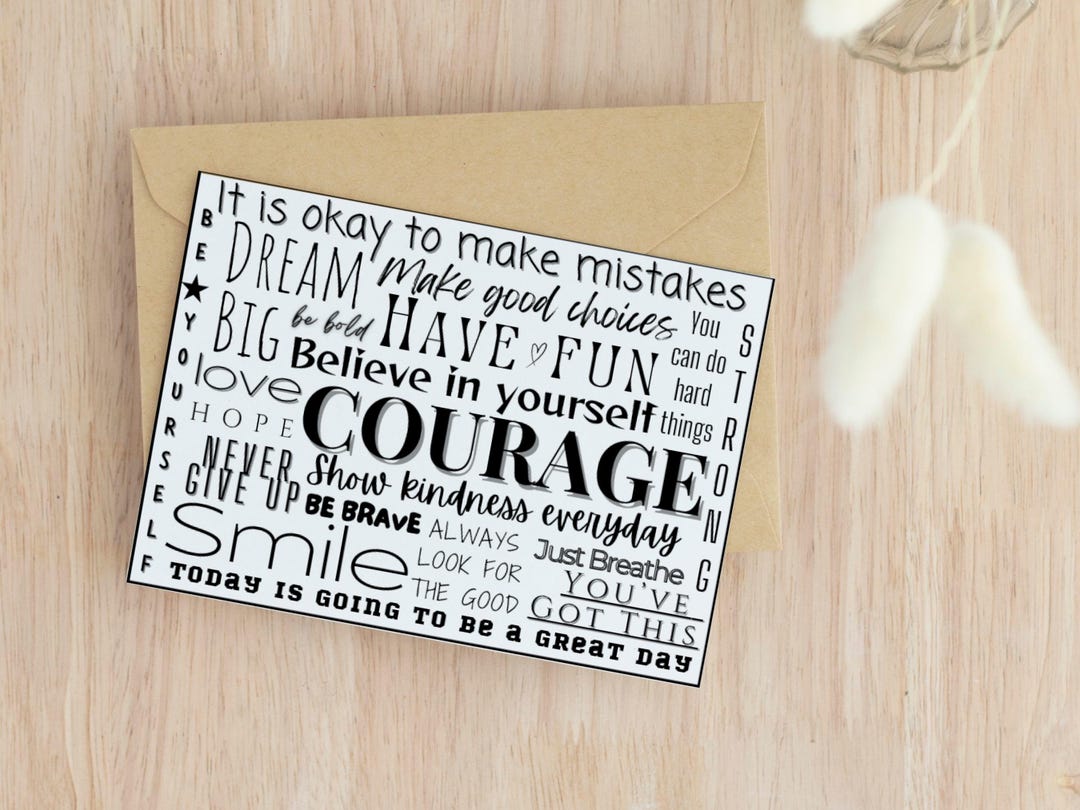 It is okay to make mistakes
BE★YOURSELF
DREAM
BIG
Make good choices
be bold
HAVE ♡ FUN
You
can do
hard
things
STRONG
Believe in yourself
love
HOPE
COURAGE
NEVER
GIVE UP
Show kindness everyday
BE BRAVE
Smile
ALWAYS
LOOK FOR
THE GOOD
Just Breathe
YOU'VE
GOT THIS
TODAY IS GOING TO BE a GREAT DAY